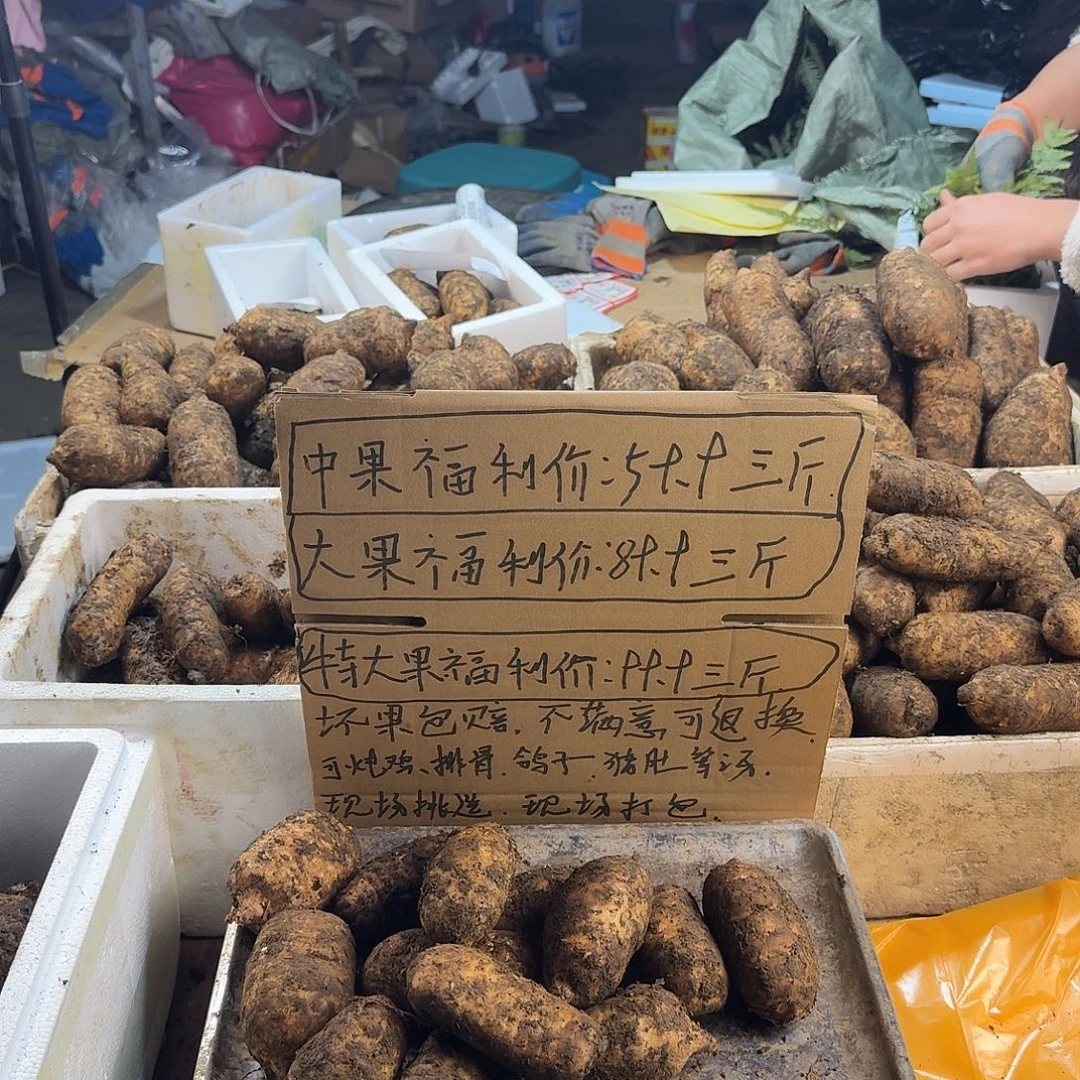 中果福利价:5 十三斤.
大果福利价:8 十三斤
特大果福利价: 十三斤
坏果包赔.不满意,可返换.
可炖鸡、排骨.鸽子.猪肚等汤.
现场挑选.现场打包.